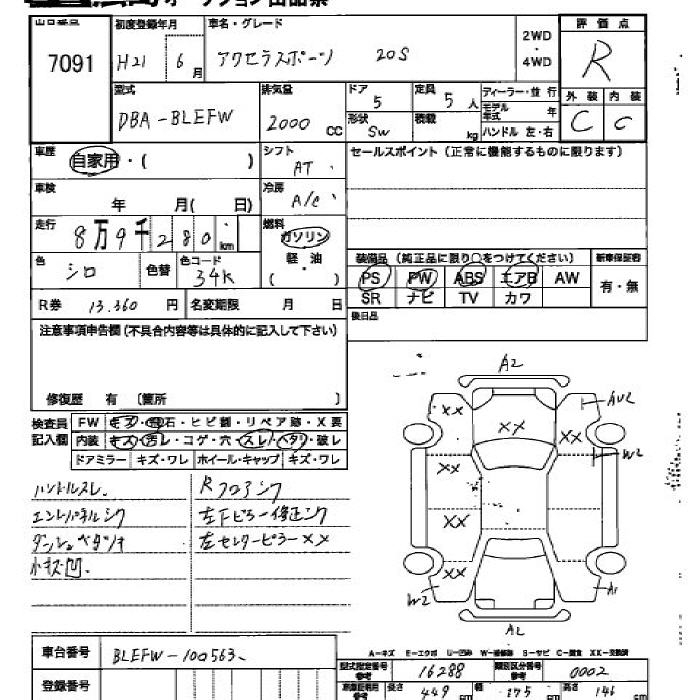 7091
初度登録年月
H21 6月
車名・グレード
アクセラスポーツ 20S
2WD・4WD
評価点
R
型式
DBA-BLEFW
排気量
2000 CC
ドア
5
形状
SW
定員
5人
積載
kg
ディーラー・並行
モデル年式 年
ハンドル 左・右
外装 内装
C C
車歴
自家用・( )
シフト
AT
セールスポイント (正常に機能するものに限ります)
車検
年 月( 日)
冷房
A/C
走行
8万9千280 km
燃料
ガソリン
軽油
( )
色
シロ
色替
色コード
34K
装備品 (純正品に限り○をつけてください)
PS PW ABS エアB AW
SR ナビ TV カワ
新車保証書
有・無
R券 13,360 円
名変期限 月 日
後日品
注意事項申告欄 (不具合内容等は具体的に記入して下さい)
修復歴 有 〔箇所 〕
検査員記入欄
FW キズ・飛石・ヒビ割・リペア跡・X要
内装 キズ・汚レ・コゲ・穴・スレ・ヘタリ・破レ
ドアミラー キズ・ワレ ホイール・キャップ キズ・ワレ
ハンドルスレ、
小キズ凹、
Rフロアシワ
左センターピラーXX
A2
XX
XX
AU2
XX
W2
XX
XX
XX
W2
A1
A2
A-キズ E-エクボ U-凹み W-補修跡 S-サビ C-腐食 XX-交換済
車台番号
BLEFW-100563
登録番号
型式指定番号
16288
類別区分番号
0002
長さ 449 cm
幅 175 cm
高さ 146 cm